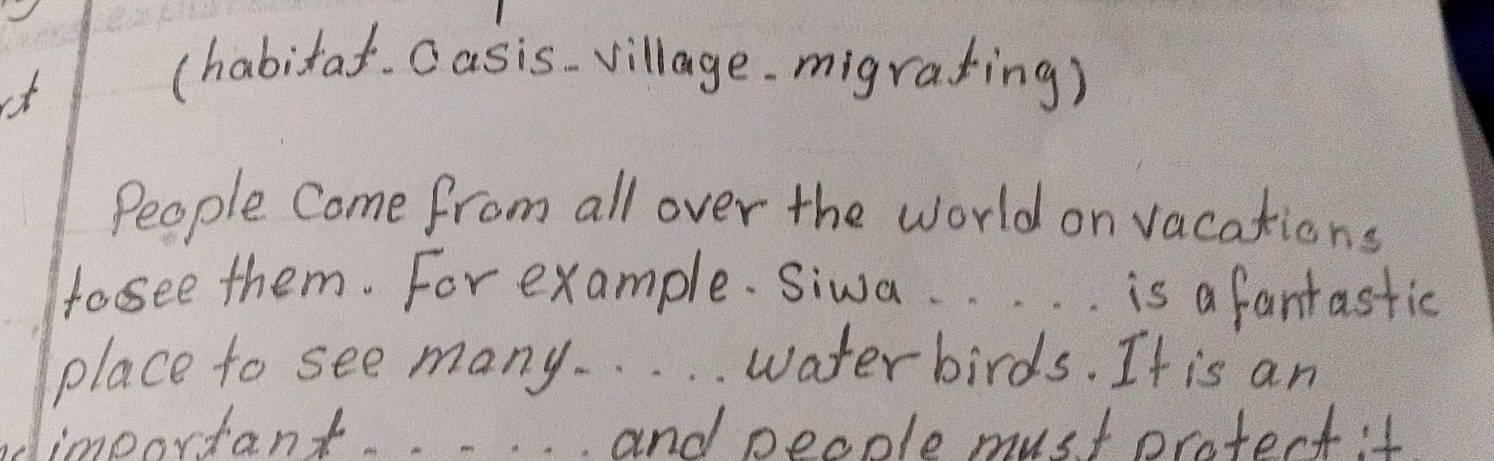 (habitat. Oasis - village - migrating)
People Come from all over the world on vacations
to see them. For example. Siwa . . . . . is a fantastic
place to see many. . . . . . water birds. It is an
important . . . . . . and people must protect it